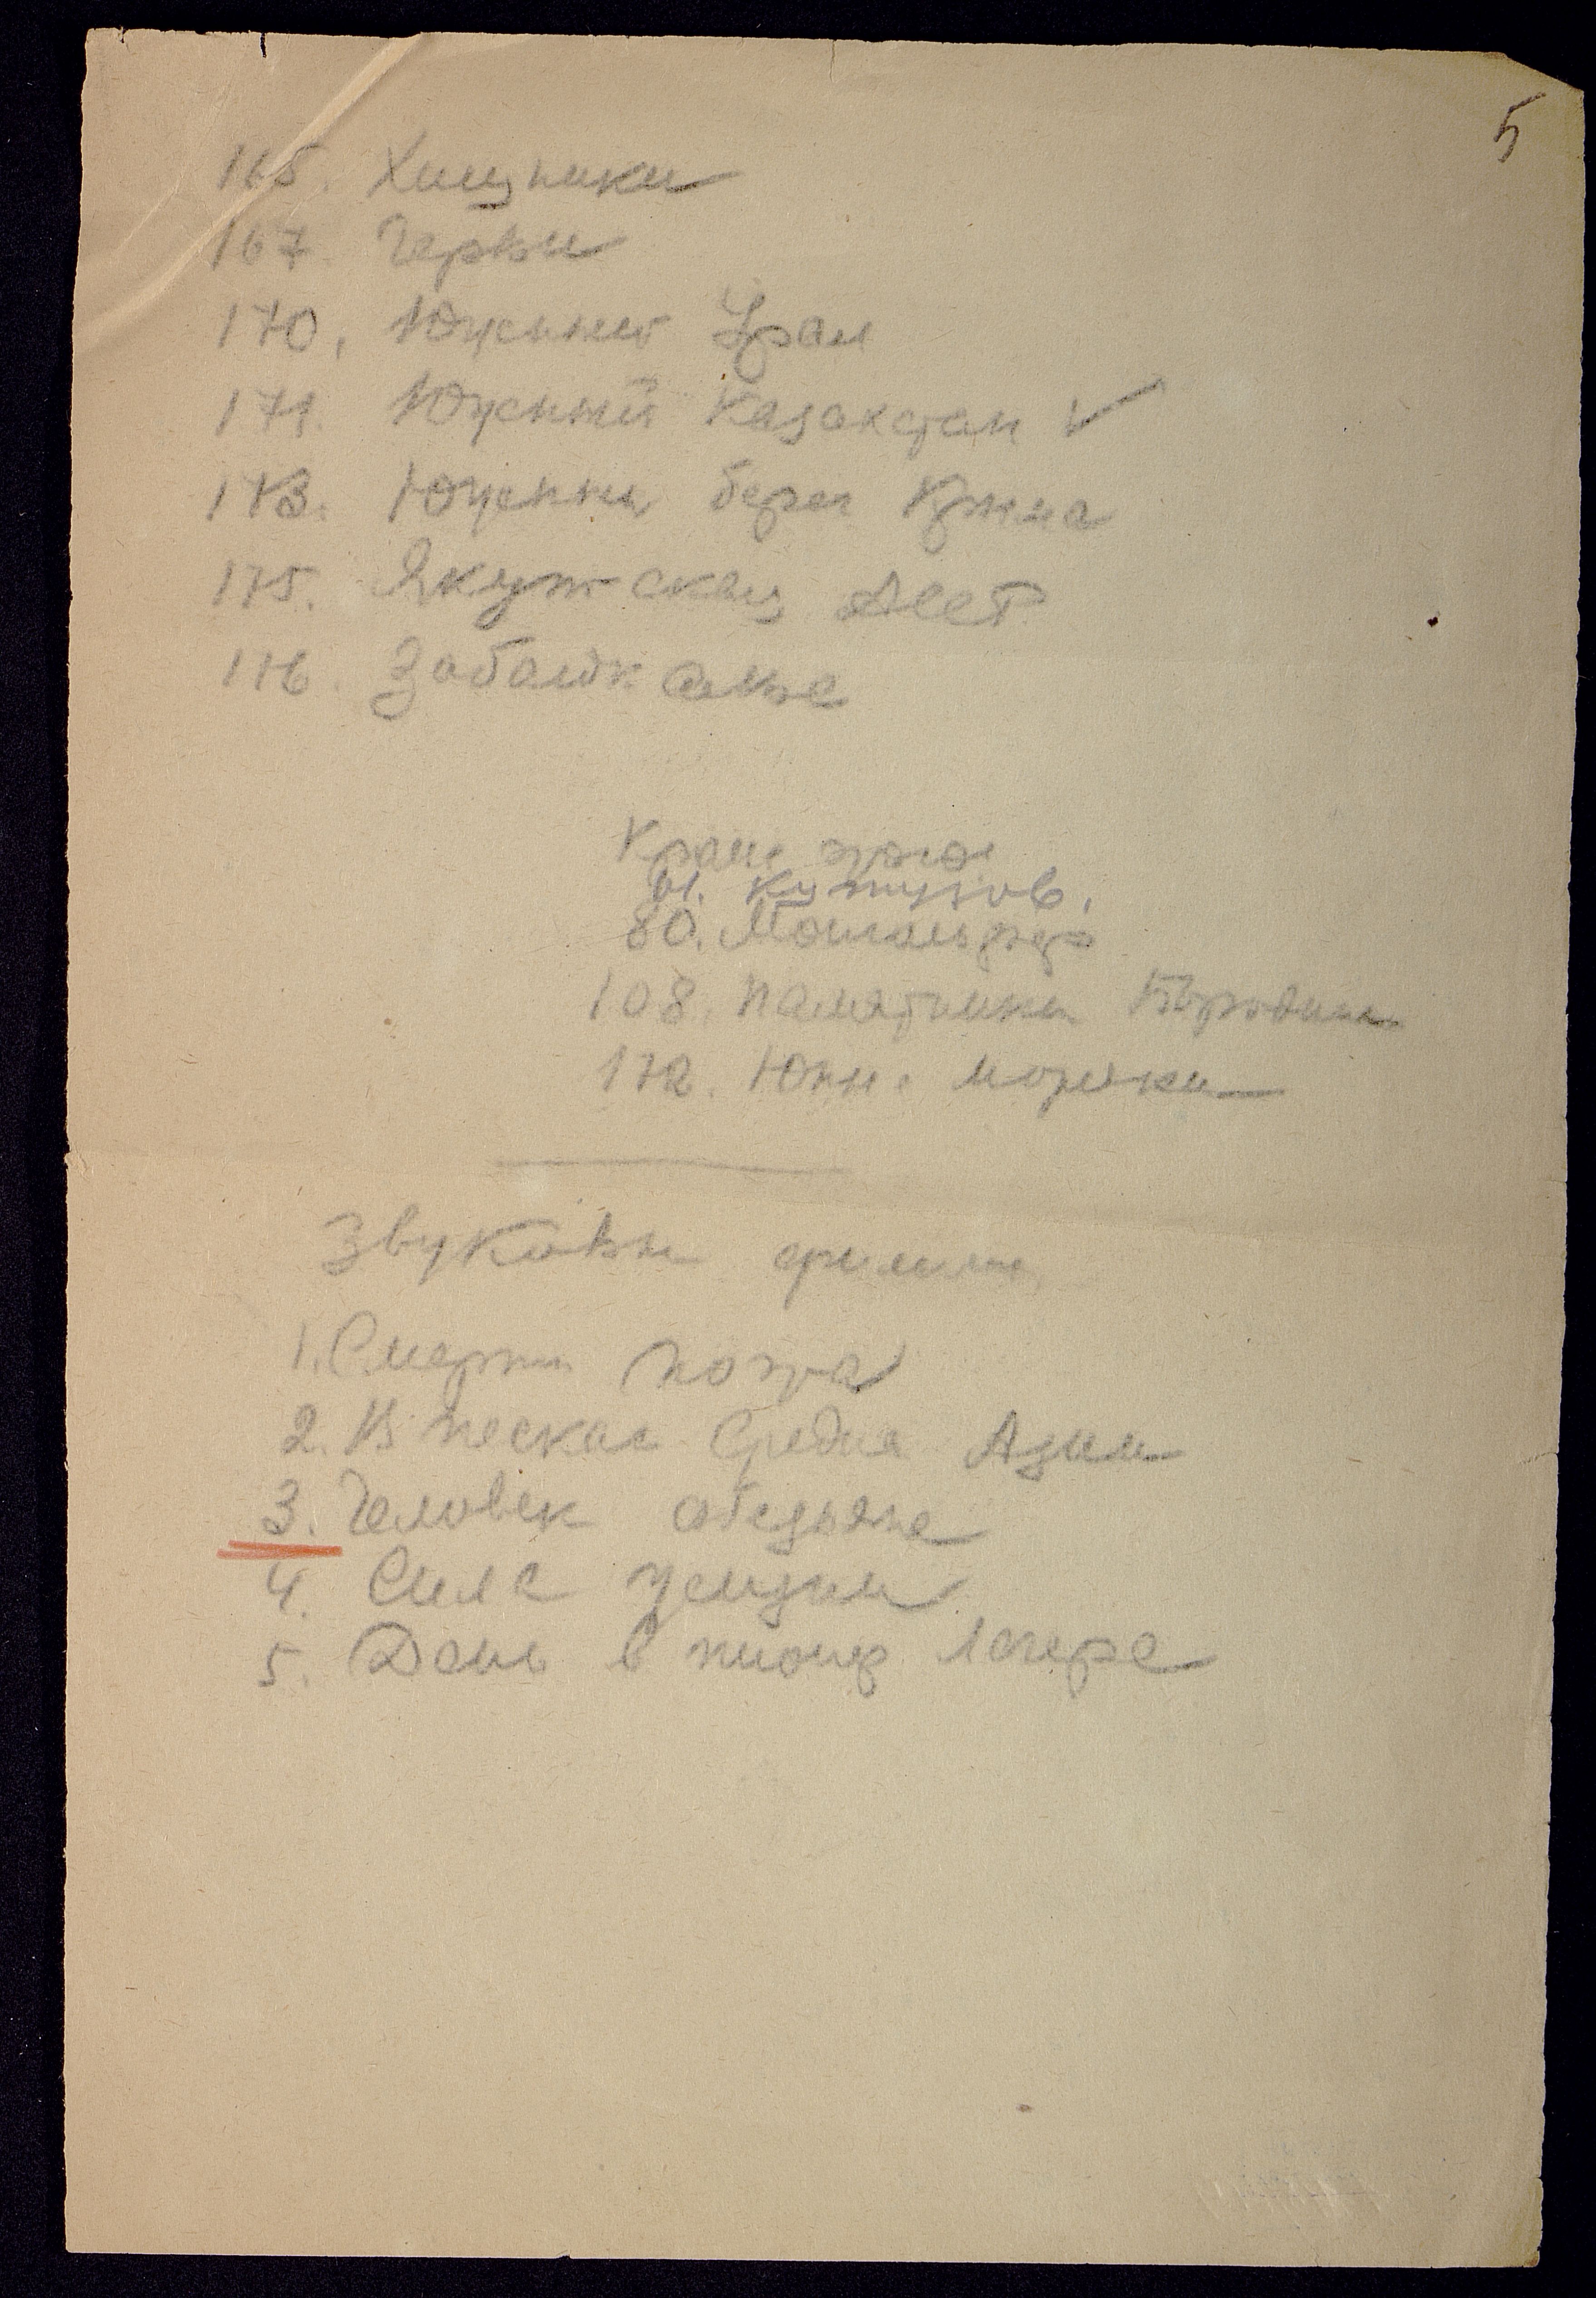 5
165. Хищники
167. Черви
170. Южный Урал
171. Южный Казахстан ✓
173. Южны берег Крыма
175. Якутская АССР
176. Забайкалье
Кроме того
61. Кутузов.
80.
108. Памятники Бородина
172. Юные моряки
Звуковые фильмы
1. Смерть поэта
2. В песках Средне Азии
3. Человек обезьяна
4. Сила жизни
5. День в пионер лагере